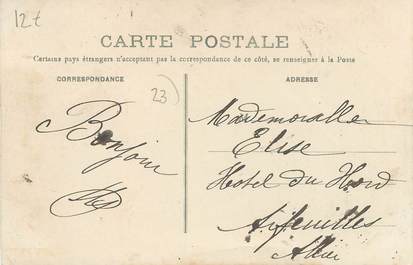 12€
CARTE POSTALE
Certains pays étrangers n'acceptant pas la correspondance de ce côté, se renseigner à la Poste
CORRESPONDANCE
ADRESSE
23
Bonjour
Mademoiselle
Elise
Hotel du Nord
Allier